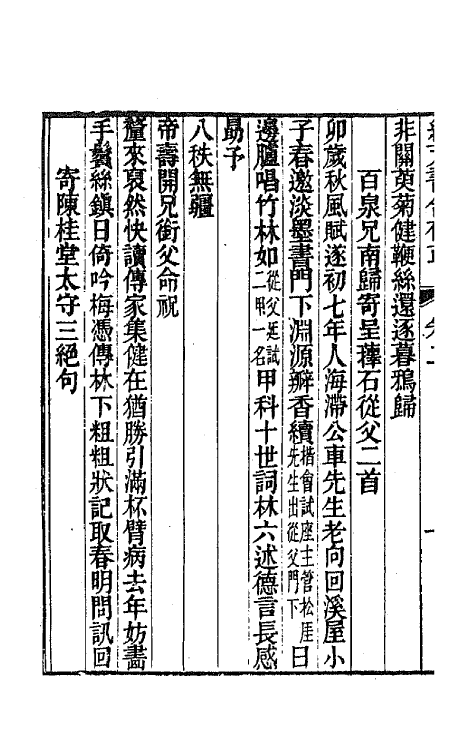 非關萸菊健鞭絲還逐暮鴉歸
百泉兄南歸寄呈蘀石從父二首
卯歲秋風賦遂初七年人海滯公車先生老向回溪屋小
子春邀淡墨書門下淵源瓣香續楷會試座主管松厓先生出從父門下日
邊臚唱竹林如從父廷試二甲一名甲科十世詞林六述德言長感
勗予
八秩無疆
帝壽開兄銜父命祝
釐來裒然快讀傳家集健在猶勝引滿杯臂病去年妨畵
手鬢絲鎮日倚吟梅憑傳林下粗粗狀記取春明問訊回
寄陳桂堂太守三絕句